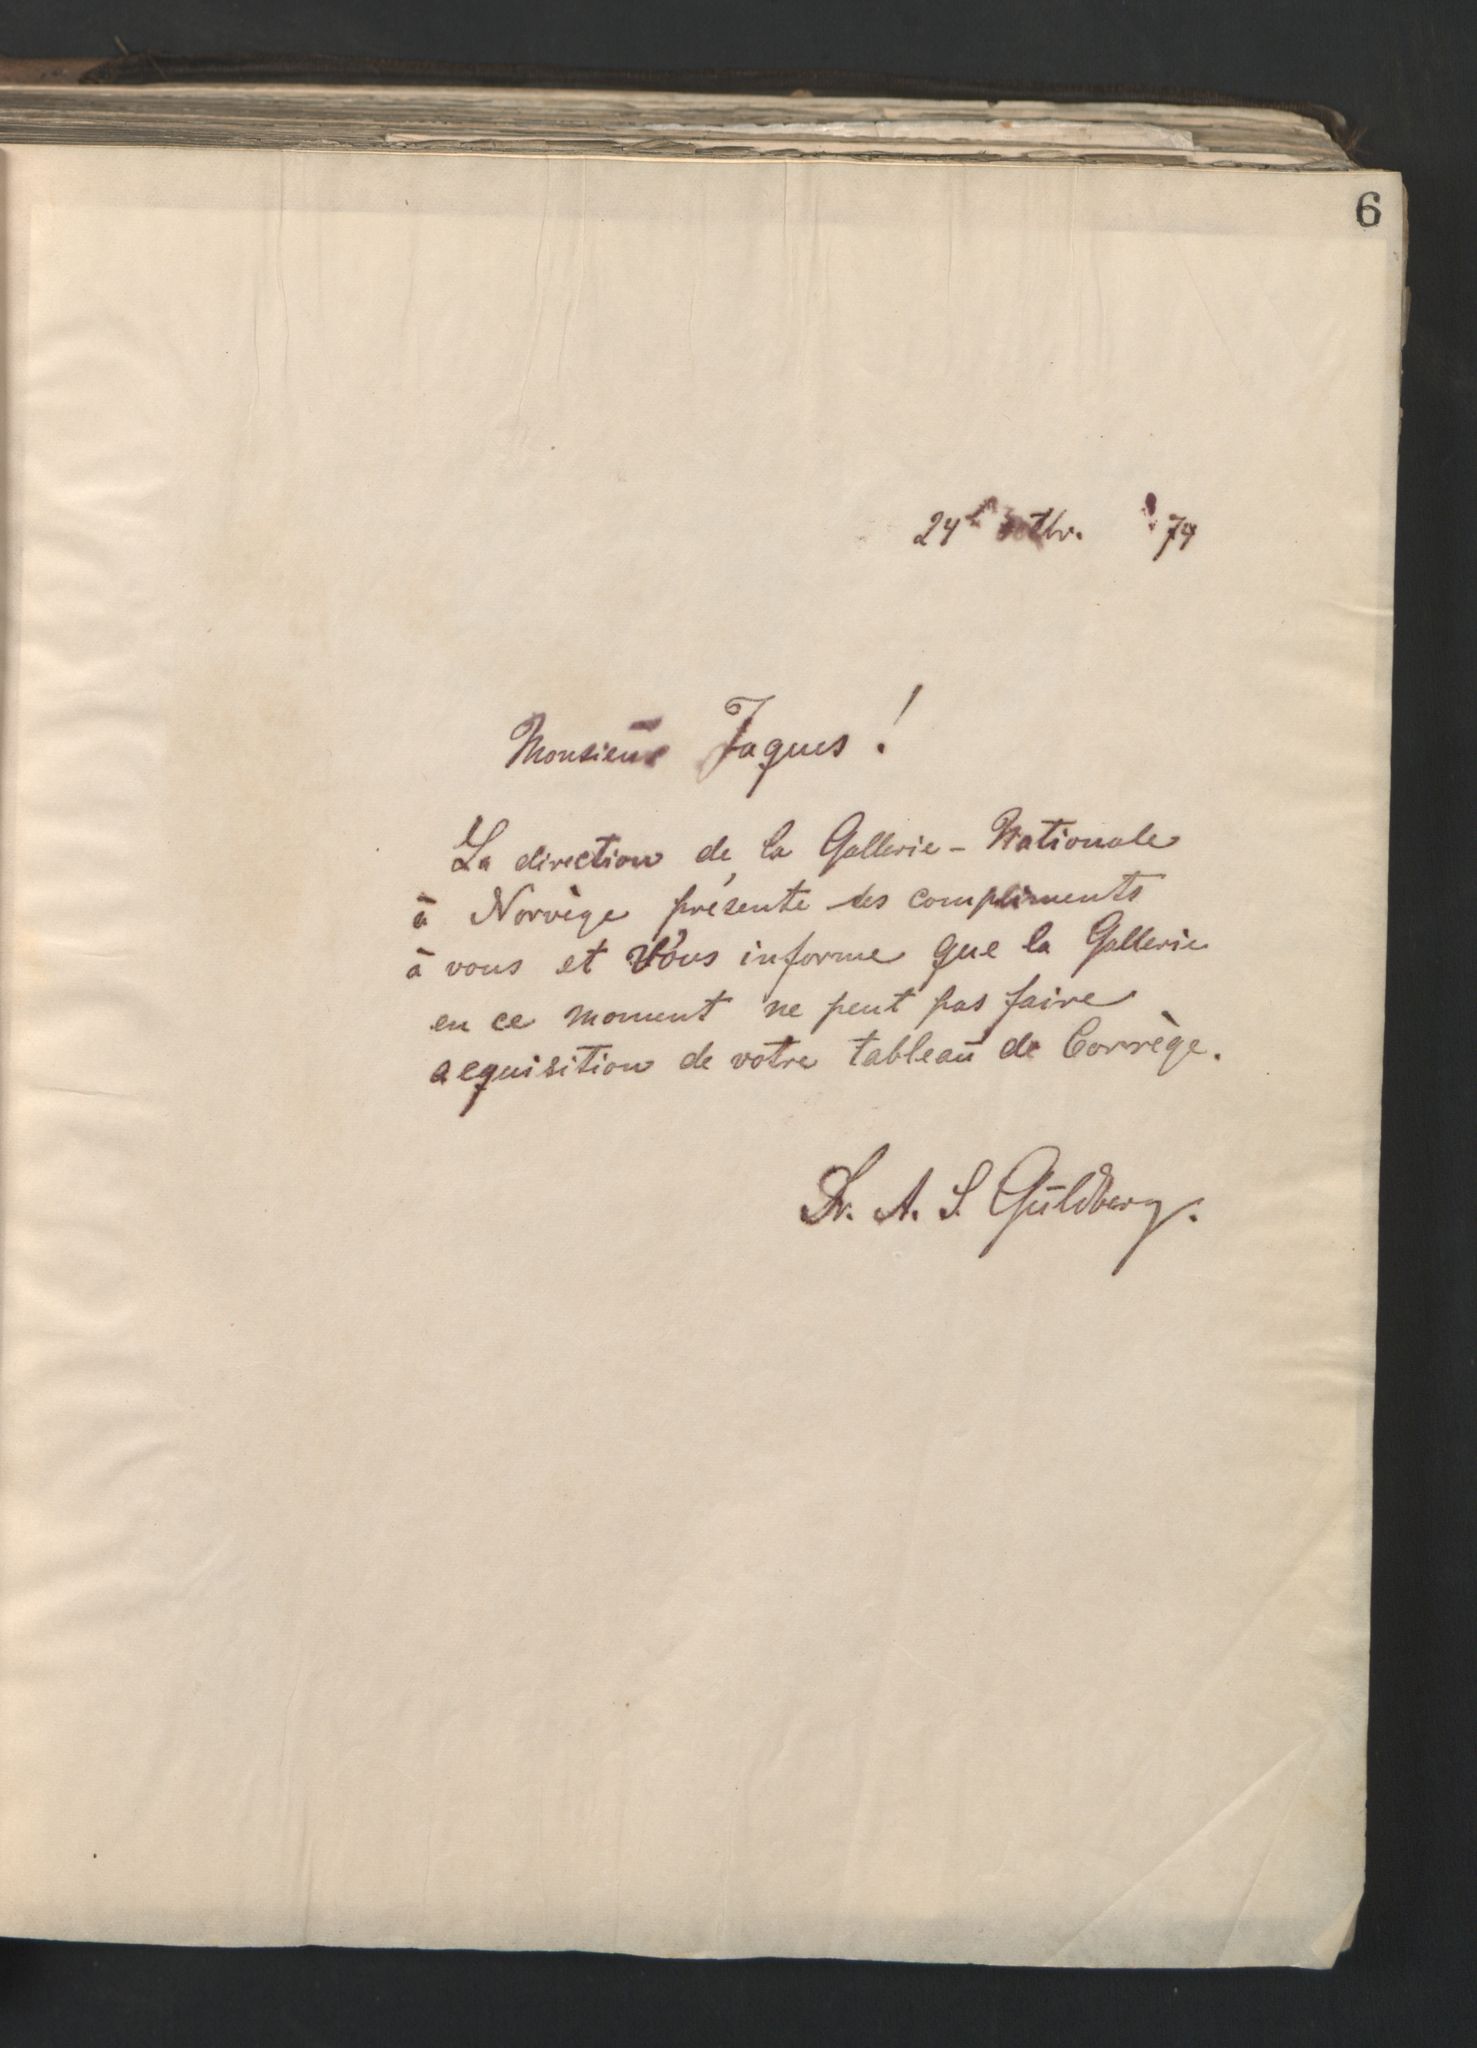 6
24 Octbr. 79
Monsieur Jaques!
La direction de la Gallerie-Nationale
à Norvège présente des compliments
à vous et Vous informe que la Gallerie
en ce moment ne peut pas faire
acquisition de votre tableau de Corrège.
Dr. A. S. Guldberg.